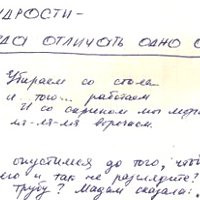 УДРОСТИ -
ДА ОТЛИЧАТЬ ОДНО О
Убираем со стола
и того... работаем
И со скрипом мы
мя-ля-мя ворочаем.
опустимся до того, чтоб
его и так не разглядите?
трубу? Мадам сказала: